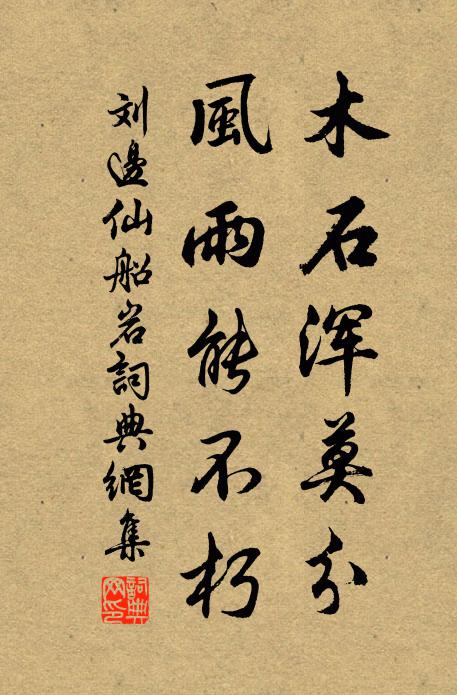 木石浑莫分
風雨能不朽
刘邊仙船岩詞典網集
詞典網印